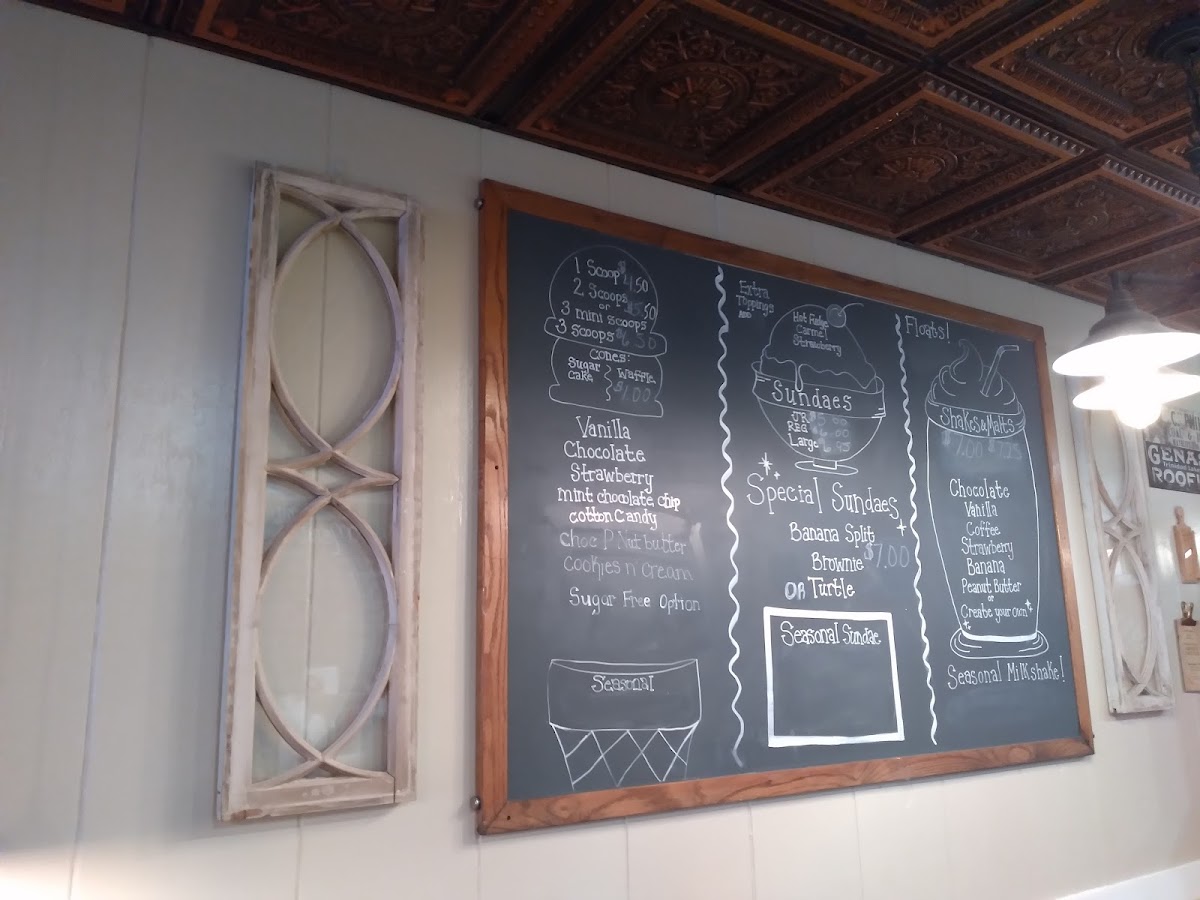 1 Scoop $4.50
2 Scoops $5.50
or
3 mini scoops
3 scoops $6.50
Cones:
Sugar
Cake
Waffle
$1.00
Vanilla
Chocolate
Strawberry
mint chocolate chip
cotton Candy
choc P. Nut butter
cookies n' cream
Sugar Free Option
Seasonal
Extra
Toppings
ADD
Hot Fudge
Carmel
Strawberry
Sundaes
JR.
REG
Large
Special Sundaes
Banana Split
Brownie $7.00
OR Turtle
Seasonal Sundae
Floats!
Shakes & Malts
$7.00 $7.25
Chocolate
Vanilla
Coffee
Strawberry
Banana
Peanut Butter
or
Create your own
Seasonal Milkshake!